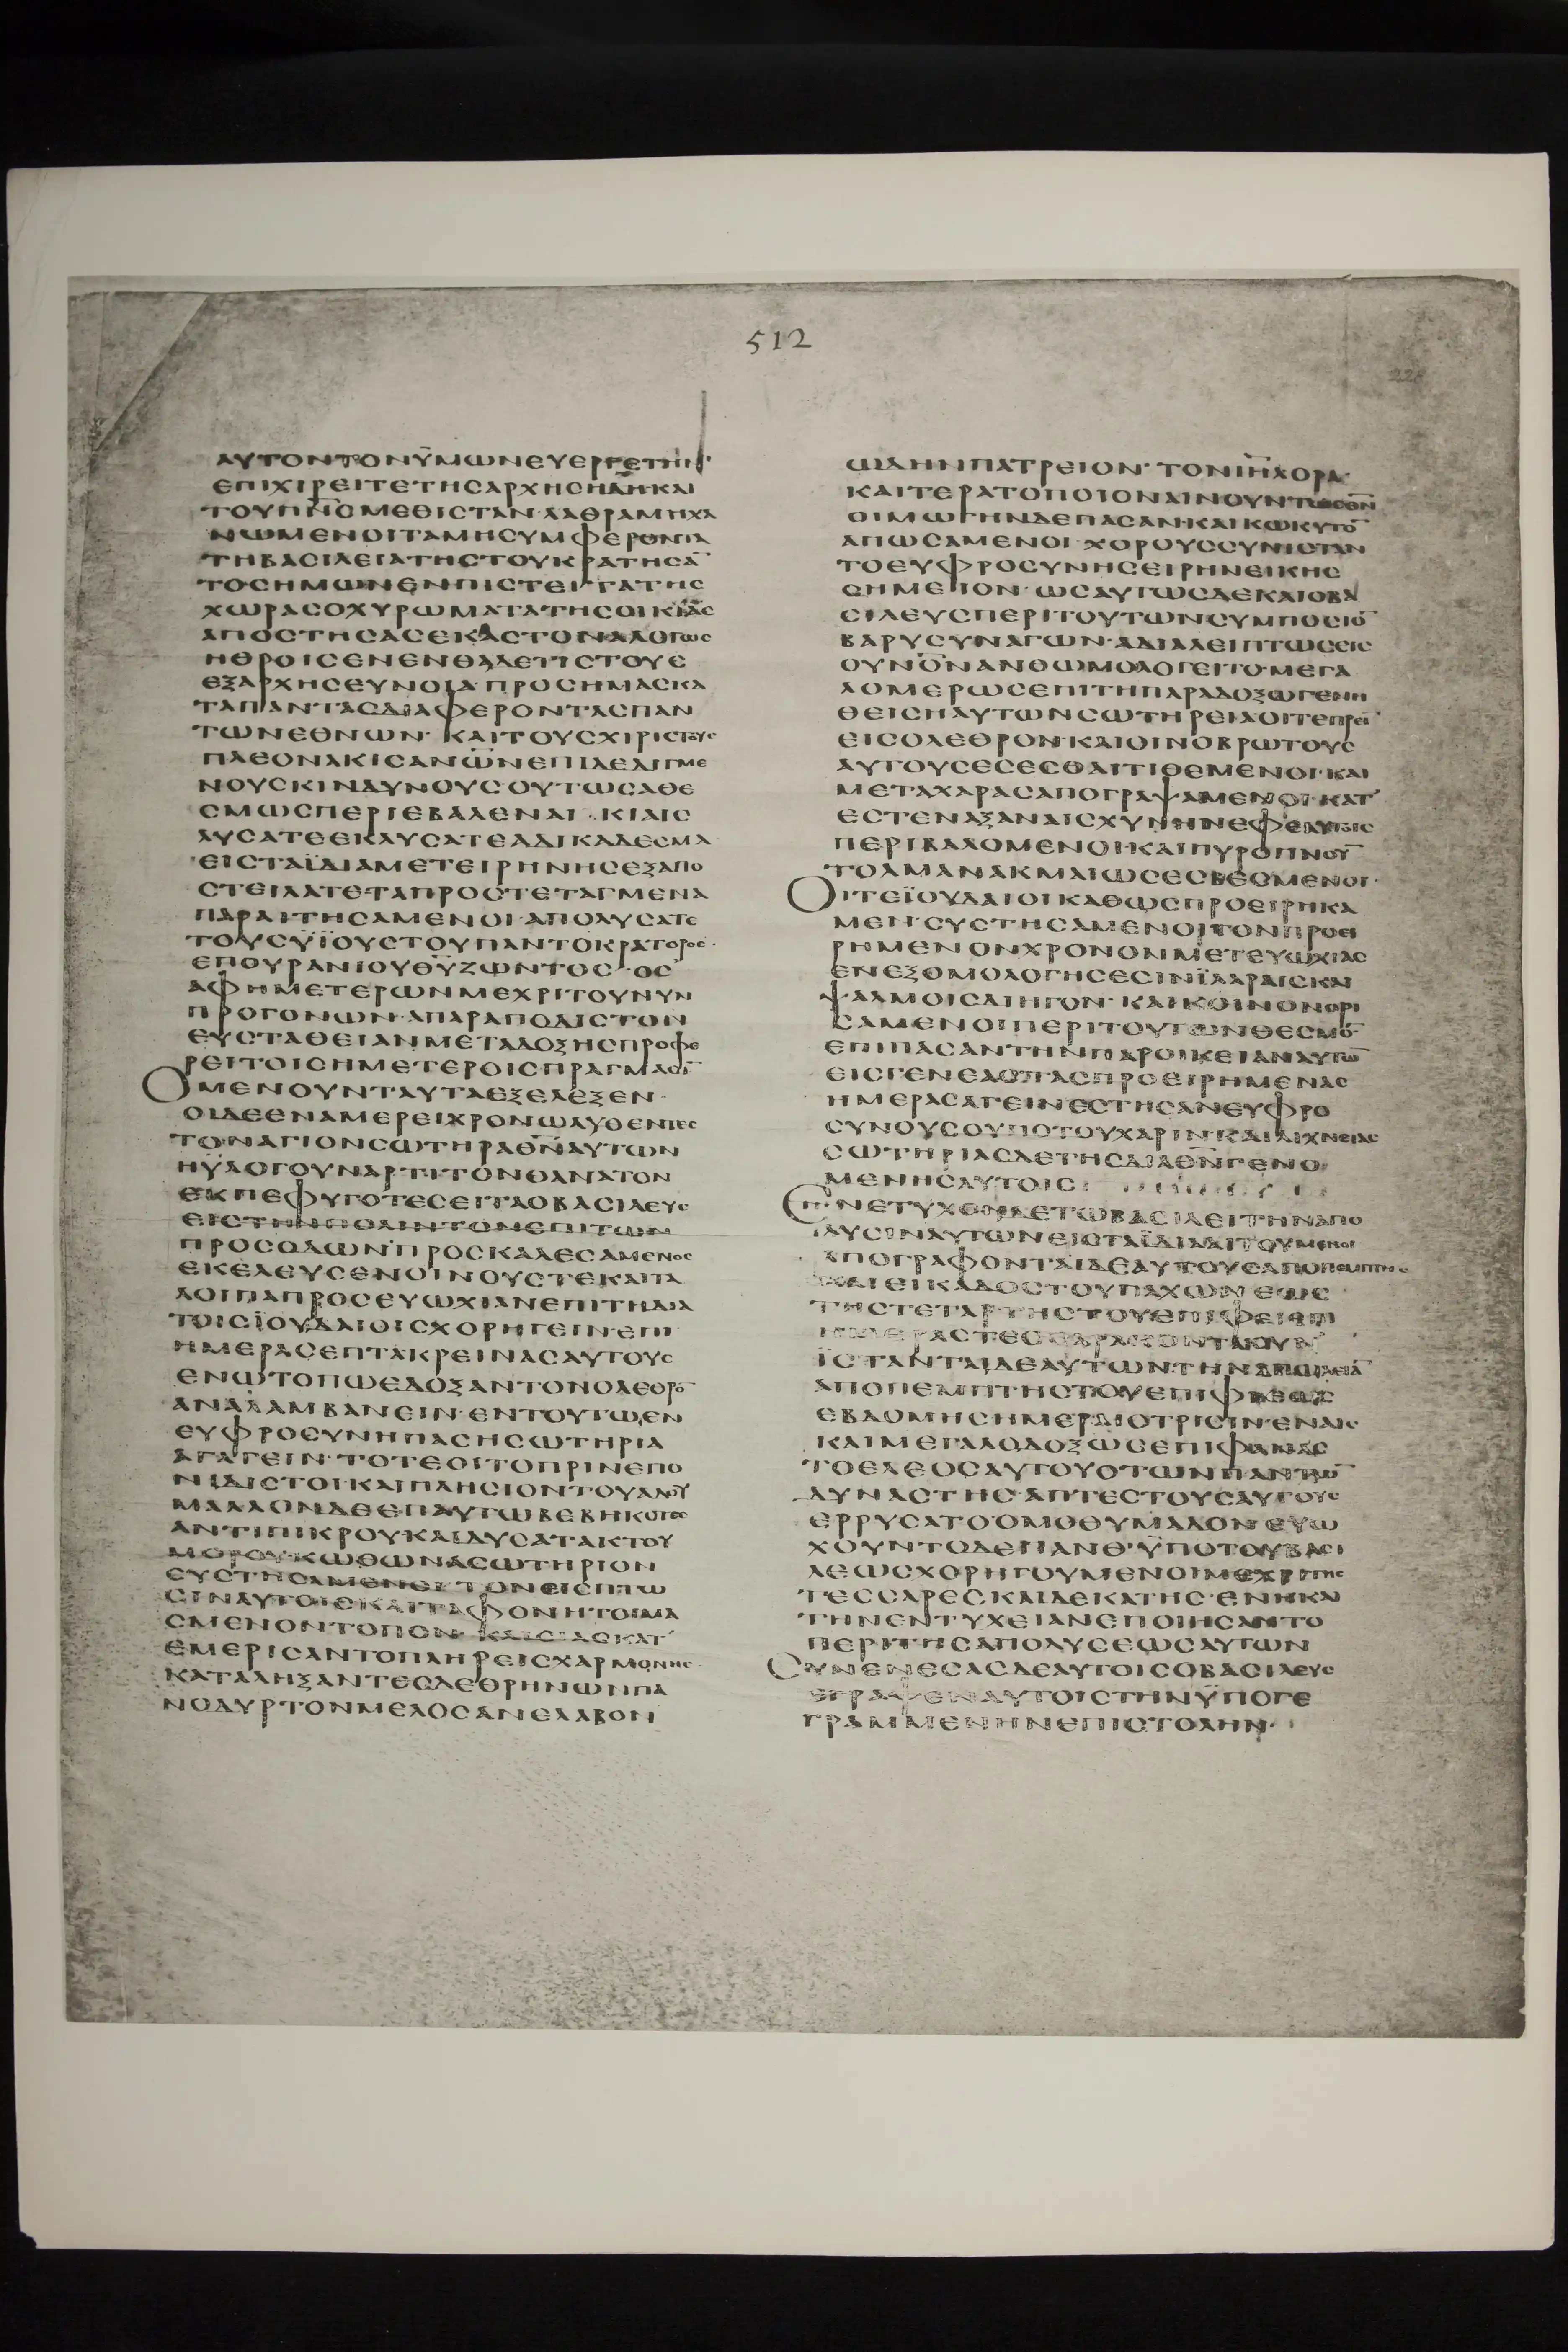 512
ΑΥΤΟΝΤΟΝΫΜΩΝΕΥΕΡΓΕΤΗΝ·
ΕΠΙΧΙΡΕΙΤΕΤΗСΑΡΧΗСΗΔΗΚΑΙ
ΤΟΥΠΝ̅СΜΕΘΙСΤΑΝ·ΛΑΘΡΑΜΗΧΑ
ΝΩΜΕΝΟΙΤΑΜΗСΥΜΦΕΡΟΝΤΑ
ΤΗΒΑСΙΛΕΙΑΤΗСΤΟΥΚΡΑΤΗСΑ̅
ΤΟСΗΜΩΝΕΝΠΙСΤΕΙ·ΓΑΤΗС
ΧΩΡΑСΟΧΥΡΩΜΑΤΑΤΗСΟΙΚΙΑС
ΑΠΟСΤΗСΑСΕΚΑСΤΟΝΑΛΟΓΩС
ΗΘΡΟΙСΕΝΕΝΘΑΔΕΤΙСΤΟΥС
ΕΞΑΡΧΗСΕΥΝΟΙΑ·ΠΡΟСΗΜΑСΚΑ
ΤΑΠΑΝΤΑСΔΙΑΦΕΡΟΝΤΑСΠΑΝ
ΤΩΝΕΘΝΩΝ·ΚΑΙΤΟΥСΧΙΡΙСΤΟΥС
ΠΛΕΟΝΑΚΙСΑΝΩ̅Ν̅ΕΠΙΔΕΔΕΓΜΕ
ΝΟΥСΚΙΝΔΥΝΟΥСΟΥΤΩСΑΘΕ
СΜΩСΠΕΡΙΕΒΑΛΕΝΑΙ·ΚΙΑΙС
ΛΥСΑΤΕΕΚΛΥСΑΤΕΑΔΙΚΑΔΕСΜΑ
ΕΙСΤΑΪΔΙΑΜΕΤΕΙΡΗΝΗСΕΞΑΠΟ
СΤΕΙΛΑΤΕ·ΤΑΠΡΟСΤΕΤΑΓΜΕΝΑ
ΠΑΡΑΙΤΗСΑΜΕΝΟΙ·ΑΠΟΛΥСΑΤΕ
ΤΟΥСΫΪΟΥСΤΟΥΠΑΝΤΟΚΡΑΤΟΡΟС·
ΕΠΟΥΡΑΝΙΟΥΘ̅Υ̅ΖΩΝΤΟС·ΟС
ΑΦΗΜΕΤΕΡΩΝΜΕΧΡΙΤΟΥΝΥΝ
ΠΡΟΓΟΝΩΝ·ΑΠΑΡΑΠΟΔΙСΤΟΝ
ΕΥСΤΑΘΕΙΑΝΜΕΤΑΔΟΞΗСΠΡΟΦΕ
ΡΕΙΤΟΙСΗΜΕΤΕΡΟΙСΠΡΑΓΜΑСΙ̅
ΟΜΕΝΟΥΝΤΑΥΤΑΕΞΕΛΕΞΕΝ·
ΟΙΔΕΕΝΑΜΕΡΕΙΧΡΟΝΩΛΥΘΕΝΤΕС
ΤΟΝΑΓΙΟΝСΩΤΗΡΑΘ̅Ν̅ΑΥΤΩΝ
ΗΫΛΟΓΟΥΝΑΡΤΙΤΟΝΘΑΝΑΤΟΝ
ΕΚΠΕΦΥΓΟΤΕСΕΙΤΑΟΒΑСΙΛΕΥС
ΕΙСΤΗΝΠΟΛΙΝΤΟΝΕΠΙΤΩΝ
ΠΡΟСΟΔΩΝΠΡΟСΚΑΛΕСΑΜΕΝΟС
ΕΚΕΛΕΥСΕΝΟΙΝΟΥСΤΕΚΑΙΤΑ
ΛΟΙΠΑΠΡΟСΕΥΩΧΙΑΝΕΠΙΤΗΔΙΑ
ΤΟΙСΪΟΥΔΑΙΟΙСΧΟΡΗΓΕΙΝ·ΕΠΙ
ΗΜΕΡΑСΕΠΤΑΚΡΕΙΝΑСΑΥΤΟΥС
ΕΝΩΤΟΠΩΕΔΟΞΑΝΤΟΝΟΛΕΘΡΟ̅
ΑΝΑΛΑΜΒΑΝΕΙΝ·ΕΝΤΟΥΤΩΕΝ
ΕΥΦΡΟСΥΝΗΠΑСΗСΩΤΗΡΙΑ
ΑΓΑΓΕΙΝ·ΤΟΤΕΟΙΤΟΠΡΙΝΕΠΟ
ΝΙΔΙСΤΟΙ·ΚΑΙΠΛΗСΙΟΝΤΟΥΑΔΟΥ
ΜΑΛΛΟΝΔΕΕΠΑΥΤΩΒΕΒΗΚΟΤΕС
ΑΝΤΙΠΙΚΡΟΥΚΑΙΔΥСΑΤΑΙΚΤΟΥ
ΜΟΡΟΥ·ΚΩΘΩΝΑСΩΤΗΡΙΟΝ
СΥСΤΗСΑΜΕΝΟΙ·ΤΟΝΕΙСΠΤΩ
СΙΝΑΥΤΟΙСΚΑΙΤΑΦΟΝΗΤΟΙΜΑ
СΜΕΝΟΝΤΟΠΟΝ·ΚΛΙСΙΑСΚΑΤ
ΕΜΕΡΙСΑΝΤΟΠΛΗΡΕΙСΧΑΡΜΟΝΗС·
ΚΑΤΑΛΗΞΑΝΤΕСΔΕΘΡΗΝΩΝΠΑ
ΝΟΔΥΡΤΟΝΜΕΛΟСΑΝΕΛΑΒΟΝ
ΩΔΗΝΠΑΤΡΕΙΟΝ·ΤΟΝΙΗ̅Λ̅ΟΡΑ
ΚΑΙΤΕΡΑΤΟΠΟΙΟΝΑΙΝΟΥΝΤΕСΘΝ̅
ΟΙΜΩΓΗΝΔΕΠΑСΑΝ·ΚΑΙΚΩΚΥΤΟ̅
ΑΠΩСΑΜΕΝΟΙ·ΧΟΡΟΥССΥΝΙСΤΑΝ
ΤΟΕΥΦΡΟСΥΝΗСΕΙΡΗΝΕΙΚΗС
СΗΜΕΙΟΝ·ΩСΑΥΤΩСΔΕΚΑΙΟΒΑ
СΙΛΕΥСΠΕΡΙΤΟΥΤΩΝСΥΜΠΟСΙΟ̅
ΒΑΡΥСΥΝΑΓΩΝ·ΑΔΙΑΛΕΙΠΤΩСΕΙС
ΟΥΝΟΝΑΝΘΩΜΟΛΟΓΕΙΤΟΜΕΓΑ
ΛΟΜΕΡΩСΕΠΙΤΗΠΑΡΑΔΟΞΩΓΕΝΗ
ΘΕΙСΗΑΥΤΩΝСΩΤΗΡΕΙΑΟΙΤΕΠΡΕΙ̅
ΕΙСΟΛΕΘΡΟΝ·ΚΑΙΟΙΝΟΒΡΩΤΟΥС
ΑΥΤΟΥСΕСΕСΘΑΙΤΙΘΕΜΕΝΟΙ·ΚΑΙ
ΜΕΤΑΧΑΡΑСΑΠΟΓΡΑΨΑΜΕΝΟΙ·ΚΑΤ
ΕСΤΕΝΑΞΑΝΑΙСΧΥΝΗΝΕΦΕΑΥΤΟΙС
ΠΕΡΙΒΑΛΟΜΕΝΟΙ·ΚΑΙΠΥΡΟΠΝΟΥ̅
ΤΟΛΜΑΝΑΚΜΑΙΩСΕСΒΕСΜΕΝΟΙ·
ΟΙΤΕΪΟΥΔΑΙΟΙΚΑΘΩСΠΡΟΕΙΡΗΚΑ
ΜΕΝ·СΥСΤΗСΑΜΕΝΟΙΤΟΝΠΡΟΕΙ
ΡΗΜΕΝΟΝΧΡΟΝΟΝΜΕΤΕΥΩΧΙΑС
ΕΝΕΞΟΜΟΛΟΓΗСΕСΙΝΪΛΑΡΑΙСΚΑΙ
ΨΑΛΜΟΙСΔΙΗΓΟΝ·ΚΑΙΚΟΙΝΟΝΟΡΙ
СΑΜΕΝΟΙΠΕΡΙΤΟΥΤΩΝΘΕСΜΟ̅
ΕΠΙΠΑСΑΝΤΗΝΠΑΡΟΙΚΕΙΑΝΑΥΤΩ̅
ΕΙСΓΕΝΕΑСΤΑСΠΡΟΕΙΡΗΜΕΝΑС
ΗΜΕΡΑСΑΓΕΙΝΕСΤΗСΑΝΕΥΦΡΟ
СΥΝΟΥСΟΥΠΟΤΟΥΧΑΡΙΝ·ΚΑΙΛΙΧΝΕΙΑС
СΩΤΗΡΙΑСΔΕΤΗСΔΙΑΘΝ̅ΓΕΝΟ
ΜΕΝΗСΑΥΤΟΙС·
ΕΝΕΤΥΧΟΝΔΕΤΩΒΑСΙΛΕΙΤΗΝΑΠΟ
ΛΥСΙΝΑΥΤΩΝΕΙСΤΑΪΔΙΑΑΙΤΟΥΜΕΝΟΙ
ΑΠΟΓΡΑΦΟΝΤΑΙΔΕΑΥΤΟΥСΑΠΟΠΕΜΠΤΗС
ΚΑΙΕΙΚΑΔΟСΤΟΥΠΑΧΩΝΕΩС
ΤΗСΤΕΤΑΡΤΗСΤΟΥΕΠΙΦΕΙΕΠΙ
ΗΜΕΡΑСΤΕССΑΡΑΚΟΝΤΑΟΥΝ
ΪСΤΑΝΤΑΙΔΕΑΥΤΩΝΤΗΝΑΠΩΛΕΙΑ̅
ΑΠΟΠΕΜΠΤΗСΤΟΥΕΠΙΦΕΙΕΩС
ΕΒΔΟΜΗСΗΜΕΡΑΙСΤΡΙСΙΝ·ΕΝΑΙС
ΚΑΙΜΕΓΑΛΟΔΟΞΩСΕΠΙΦΑΝΑС
ΤΟΕΛΕΟСΑΥΤΟΥΟΤΩΝΠΑΝΤΩ̅
ΔΥΝΑСΤΗС·ΑΠΤΕСΤΟΥСΑΥΤΟΥС
ΕΡΡΥСΑΤΟΟΜΟΘΥΜΑΔΟΝ·ΕΥΩ
ΧΟΥΝΤΟΔΕΠΑΝΘ·ΫΠΟΤΟΥΒΑСΙ
ΛΕΩСΧΟΡΗΓΟΥΜΕΝΟΙΜΕΧΡΙΤΗС
ΤΕССΑΡΕСΚΑΙΔΕΚΑΤΗС·ΕΝΗΚΑΙ
ΤΗΝΕΝΤΥΧΕΙΑΝΕΠΟΙΗСΑΝΤΟ
ΠΕΡΙΤΗСΑΠΟΛΥСΕΩСΑΥΤΩΝ
СΥΝΕΝΕСΑСΔΕΑΥΤΟΙСΟΒΑСΙΛΕΥС
ΕΓΡΑΨΕΝΑΥΤΟΙСΤΗΝΫΠΟΓΕ
ΓΡΑΜΜΕΝΗΝΕΠΙСΤΟΛΗΝ·